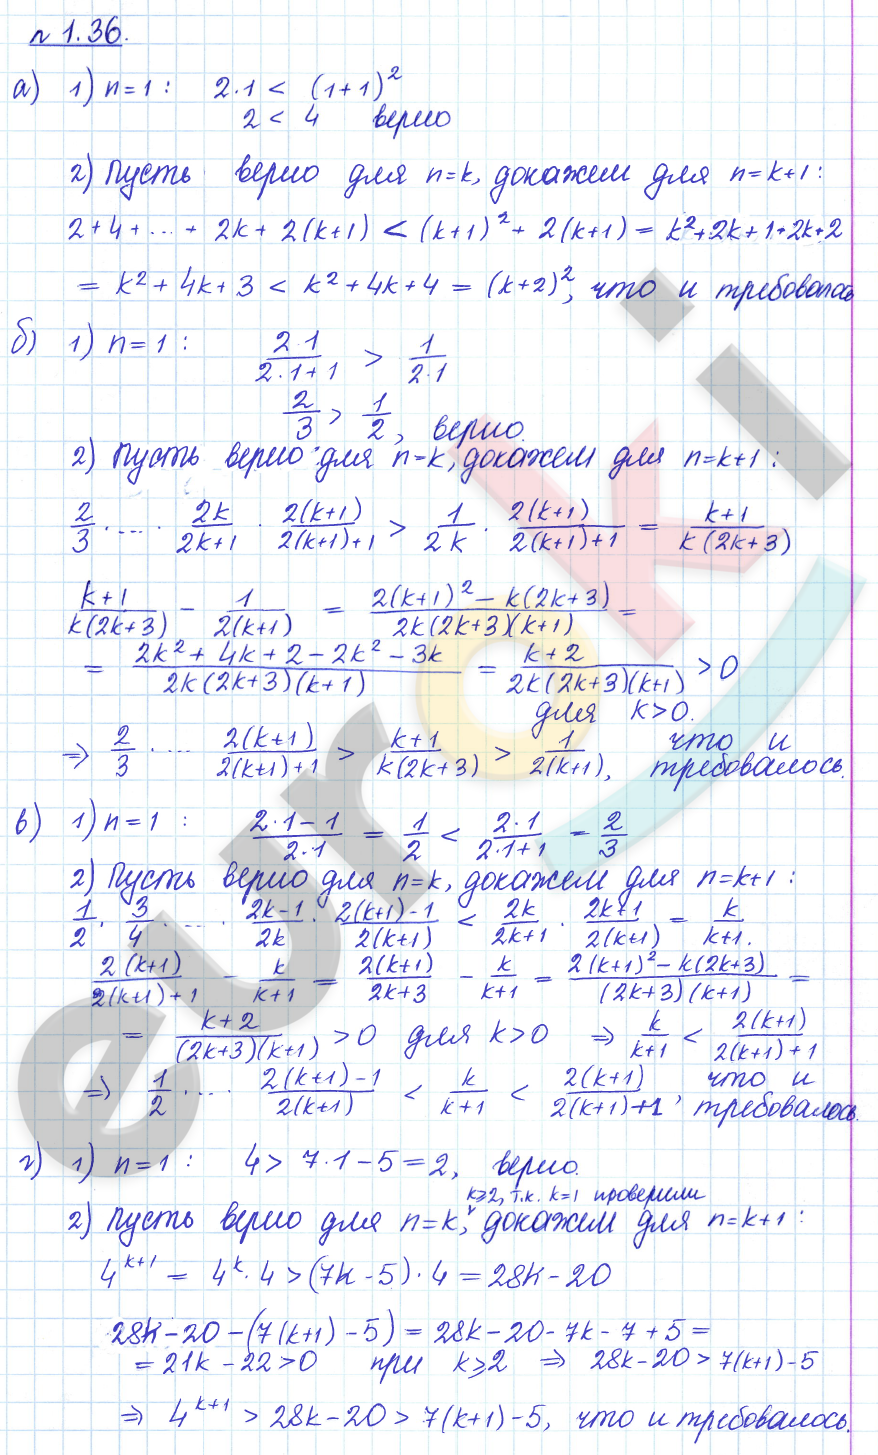 n 1.36.
а) 1) n=1: 2·1 < (1+1)^2
2 < 4 верно
2) Пусть верно для n=k, докажем для n=k+1:
2+4+...+2k+2(k+1) < (k+1)^2+2(k+1) = k^2+2k+1+2k+2
= k^2+4k+3 < k^2+4k+4 = (k+2)^2, что и требовалось
б) 1) n=1: 2·1/(2·1+1) > 1/(2·1)
2/3 > 1/2, верно.
2) Пусть верно для n=k, докажем для n=k+1:
2/3 · ... · 2k/(2k+1) · 2(k+1)/(2(k+1)+1) > 1/(2k) · 2(k+1)/(2(k+1)+1) = (k+1)/(k(2k+3))
(k+1)/(k(2k+3)) - 1/(2(k+1)) = (2(k+1)^2-k(2k+3))/(2k(2k+3)(k+1)) =
= (2k^2+4k+2-2k^2-3k)/(2k(2k+3)(k+1)) = (k+2)/(2k(2k+3)(k+1)) > 0
для k>0.
=> 2/3 · ... 2(k+1)/(2(k+1)+1) > (k+1)/(k(2k+3)) > 1/(2(k+1)), что и
требовалось.
в) 1) n=1: (2·1-1)/(2·1) = 1/2 < 2·1/(2·1+1) = 2/3
2) Пусть верно для n=k, докажем для n=k+1:
1/2 · 3/4 · ... · (2k-1)/(2k) · (2(k+1)-1)/(2(k+1)) < 2k/(2k+1) · (2k+1)/(2(k+1)) = k/(k+1).
2(k+1)/(2(k+1)+1) - k/(k+1) = 2(k+1)/(2k+3) - k/(k+1) = (2(k+1)^2-k(2k+3))/((2k+3)(k+1)) =
= (k+2)/((2k+3)(k+1)) > 0 для k>0 => k/(k+1) < 2(k+1)/(2(k+1)+1)
=> 1/2 · ... (2(k+1)-1)/(2(k+1)) < k/(k+1) < 2(k+1)/(2(k+1)+1), что и
требовалось.
г) 1) n=1: 4 > 7·1-5=2, верно.
k⩾2, т.к. k=1 проверили
2) Пусть верно для n=k, докажем для n=k+1:
4^(k+1) = 4^k·4 > (7k-5)·4 = 28k-20
28k-20-(7(k+1)-5) = 28k-20-7k-7+5 =
= 21k-22>0 при k⩾2 => 28k-20 > 7(k+1)-5
=> 4^(k+1) > 28k-20 > 7(k+1)-5, что и требовалось.
euroki